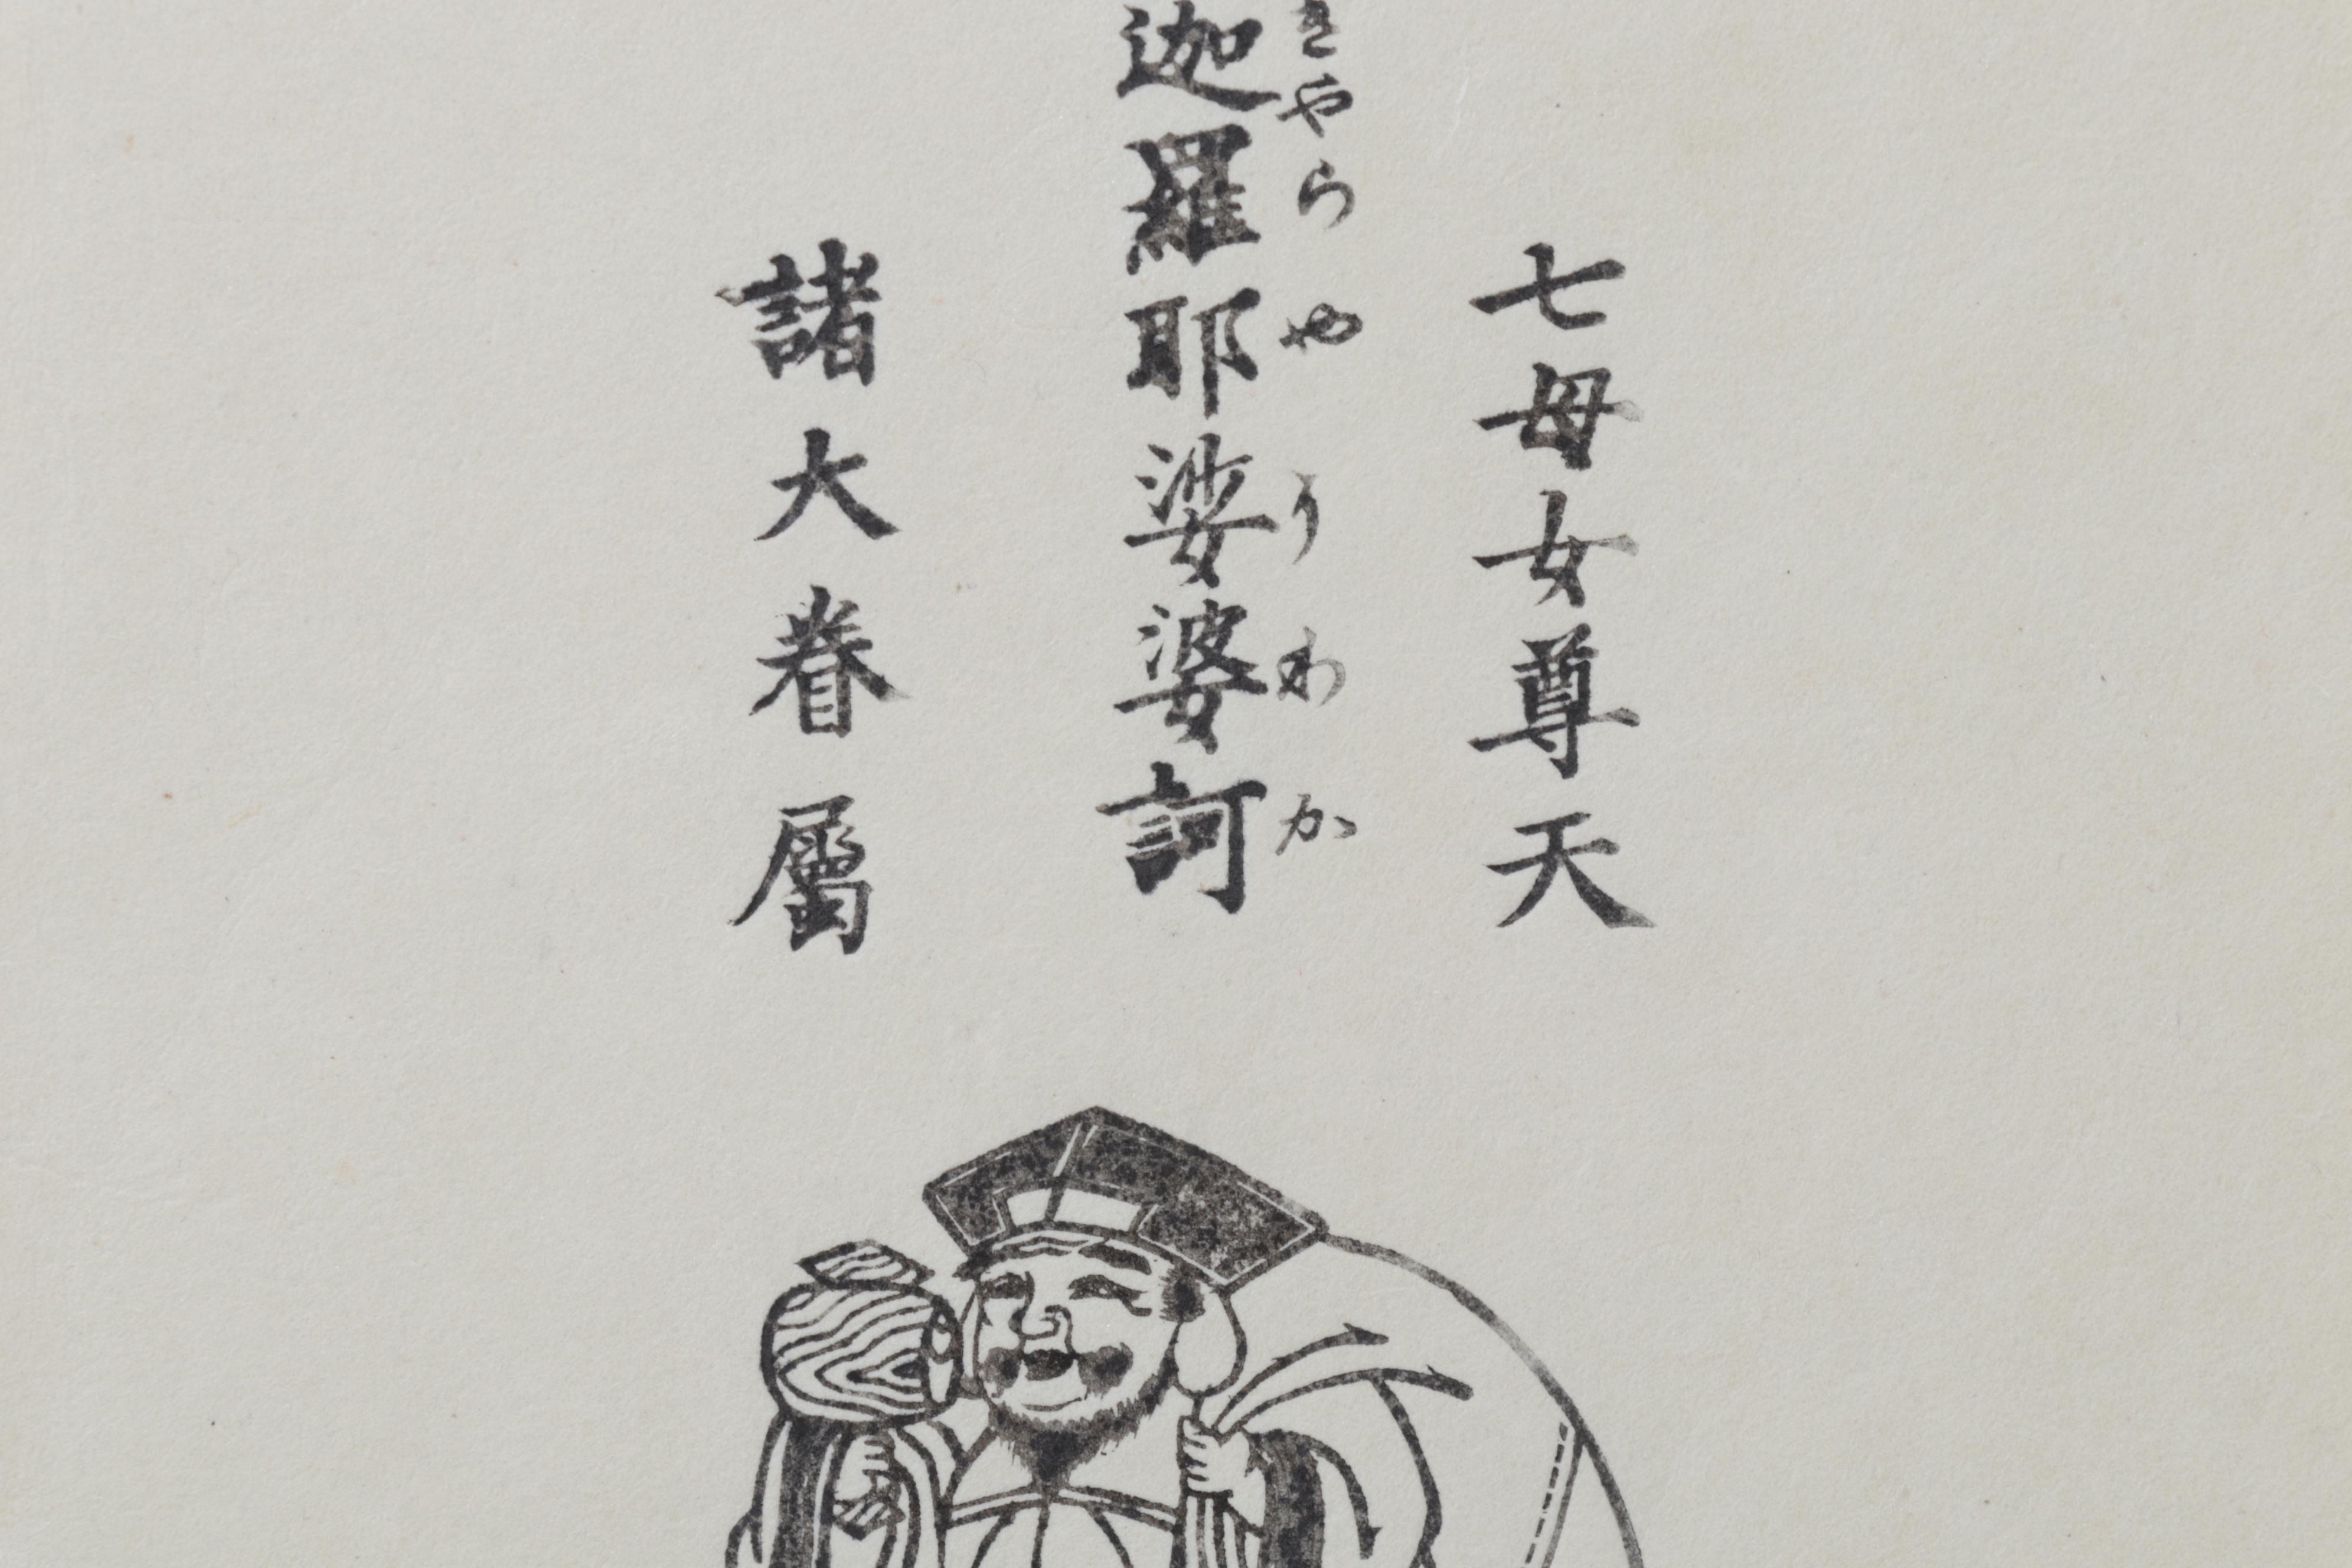 七母女尊天
迦羅耶娑婆訶
きやらやうわか
諸大眷屬